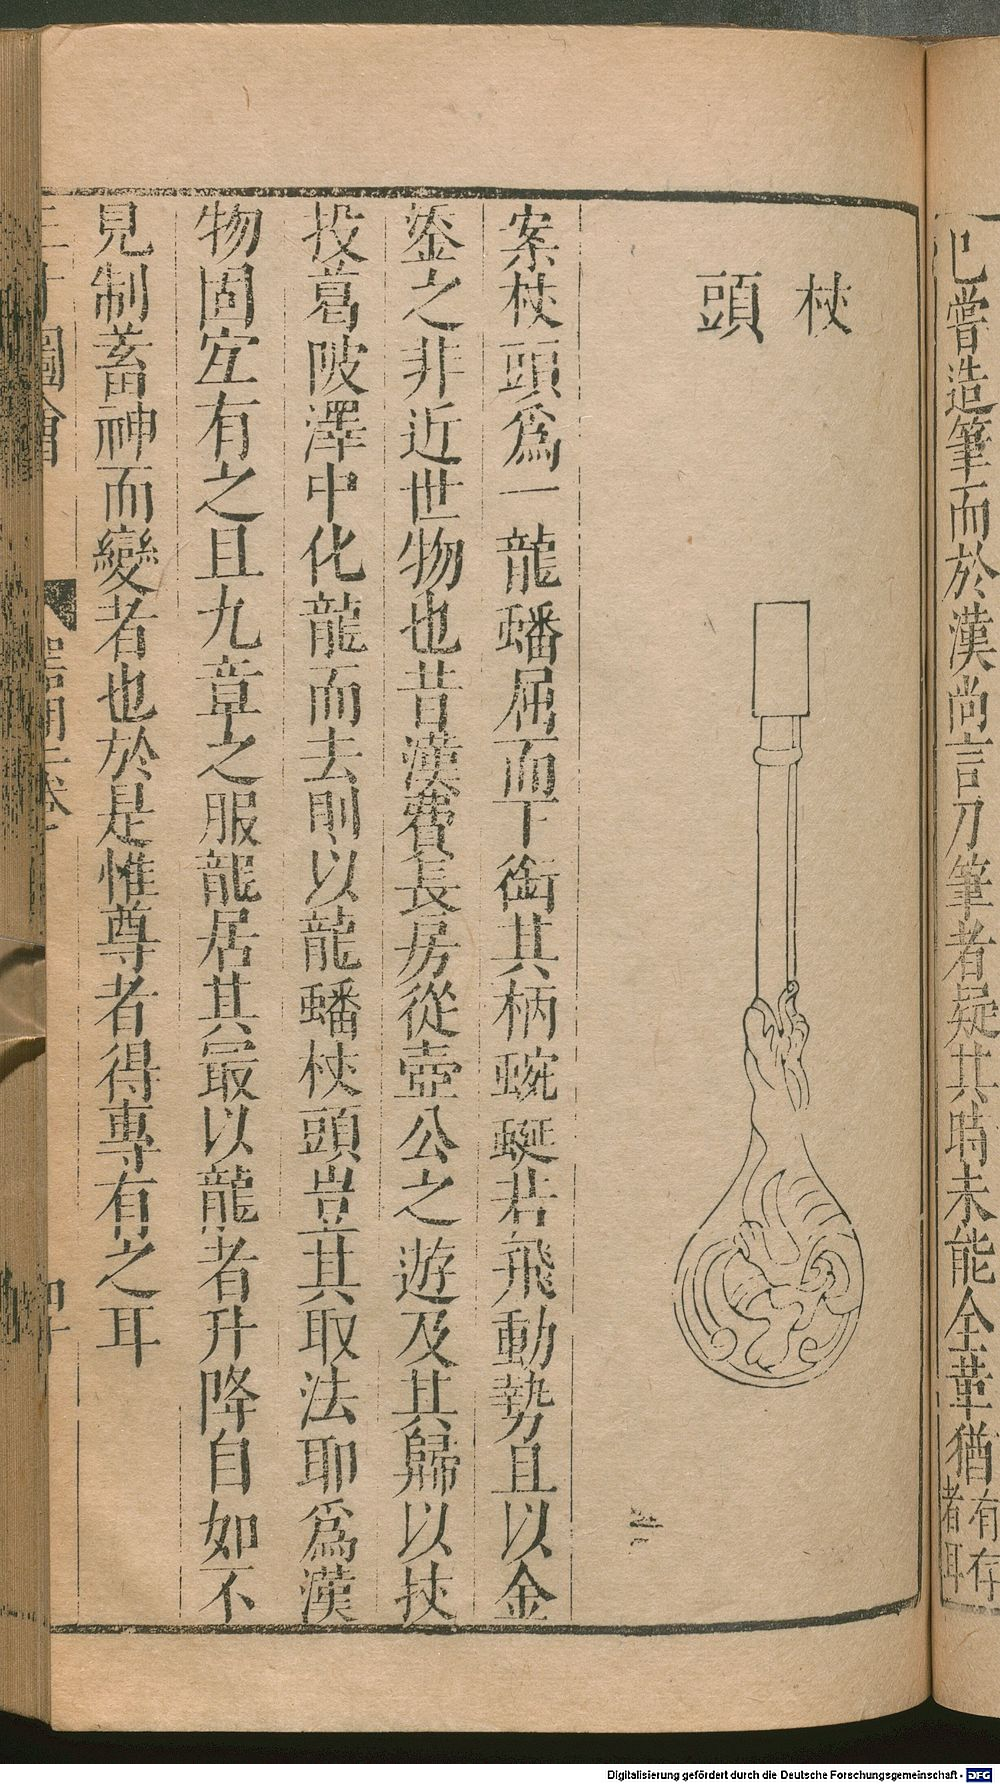 已嘗造筆而於漢尚言刀筆者疑其時未能全革猶有存者耳
杖頭
案杖頭爲一龍蟠屈而下銜其柄蜿蜒若飛動勢且以金
鋈之非近世物也昔漢費長房從壺公之遊及其歸以杖
投葛陂澤中化龍而去則以龍蟠杖頭豈其取法耶爲漢
物固宜有之且九章之服龍居其最以龍者升降自如不
見制蓄神而變者也於是惟尊者得專有之耳
三才圖會
Digitalisierung gefördert durch die Deutsche Forschungsgemeinschaft - DFG